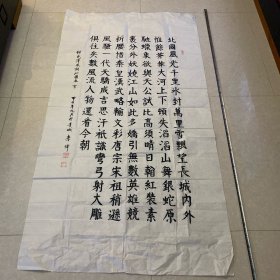 北國風光千里冰封萬里雪飄望長城內外
惟餘莽莽大河上下頓失滔滔山舞銀蛇原
馳蠟象欲與天公試比高須晴日看紅裝素
裹分外妖嬈江山如此多嬌引無數英雄競
折腰惜秦皇漢武略輸文彩唐宗宋祖稍遜
風騷一代天驕成吉思汗祇識彎弓射大雕
俱往矣數風流人物還看今朝